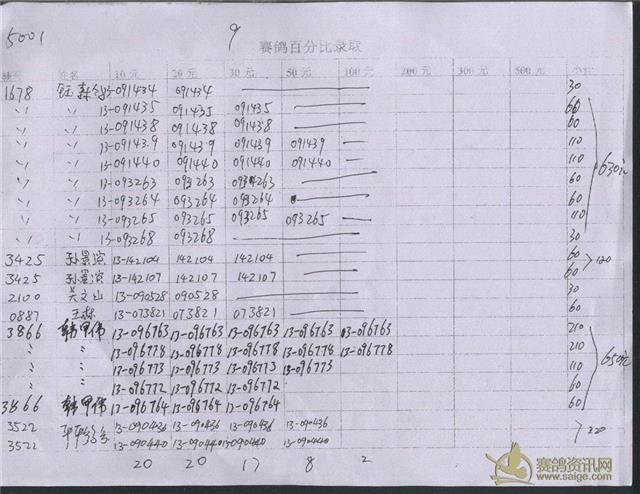 5001 9
赛鸽百分比录取
棚号 姓名 10元 20元 30元 50元 100元 200元 300元 500元 合计
1678 13-091434 091434 30
〃 〃 13-091435 091435 091435 60
〃 〃 13-091438 091438 091438 60
〃 〃 13-091439 091439 091439 091439 110
〃 〃 13-091440 091440 091440 091440 110
〃 〃 13-093263 093263 093263 60
〃 〃 13-093264 093264 093264 60
〃 〃 13-093265 093265 093265 093265 110
〃 〃 13-093268 093268 30
630元
3425 孙景滨 13-142104 142104 142104 60
3425 孙景滨 13-142107 142107 142107 60
120
2100 吴文山 13-090528 090528 30
0887 王栋 13-073821 073821 073821 60
3866 韩甲伟 13-096763 13-096763 13-096763 13-096763 13-096763 210
〃 〃 13-096778 13-096778 13-096778 13-096778 13-096778 210
〃 〃 13-096773 13-096773 13-096773 13-096773 110
〃 〃 13-096772 13-096772 13-096772 60
3866 韩甲伟 13-096764 13-096764 13-096764 60
650元
3522 13-090436 13-090436 13-090436 13-090436
3522 13-090440 13-090440 13-090440 13-090440
220
20 20 17 8 2
赛鸽资讯网
www.saige.com